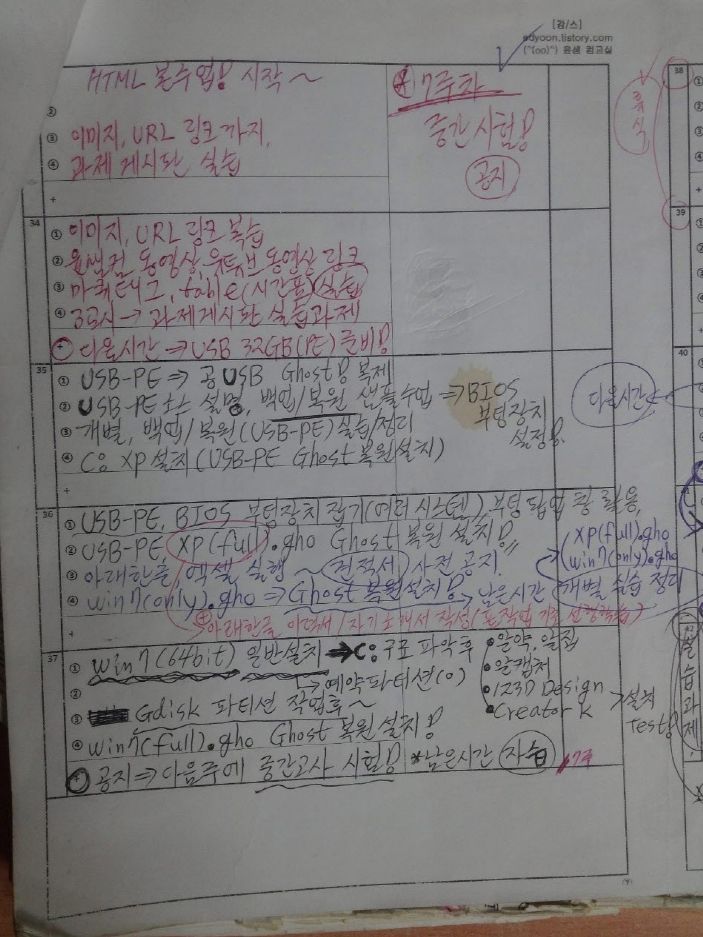 [강/스]
edyoon.tistory.com
("(oo)") 윤샘 컴교실
HTML 본수업! 시작~
②
③ 이미지, URL 링크까지,
④ 과제게시판 실습
+
7주차
중간시험!
공지
34
① 이미지, URL 링크 복습
② 동영상, 유튜브 동영상 링크
③ 마퀴태그, table(시간표) 실습
④ 3교시→과제게시판 실습과제
+ 다음시간 ⇒ USB 32GB(PE) 준비!
35
① USB-PE ⇒ 공USB Ghost! 복제
② USB-PE 소스 설명, 백업/복원 샘플수업 ⇒ BIOS
부팅장치
설정!
③ 개별, 백업/복원(USB-PE) 실습/정리
④ C: XP 설치 (USB-PE Ghost 복원설치)
+
36
① USB-PE, BIOS 부팅장치 잡기(여러시스템), 부팅 팝업 창 활용,
② USB-PE, XP(full).gho Ghost 복원 설치!
③ 아래한글, 엑셀, 실행 ~ 견적서 사전 공지.
XP(full).gho
win7(only).gho
④ win7(only).gho ⇒ Ghost 복원설치! 남은시간 개별 실습 정리
+ 아래한글 이력서/자기소개서 작성
37
① win7(64bit) 일반설치 → C: 구조 파악후
② 예약파티션(0)
③ Gdisk 파티션 작업후~
④ win7(full).gho Ghost 복원 설치!
알약, 알집
알캡처
123D Design
Creator K
→ 설치
Test!
+ 공지 ⇒ 다음주에 중간고사 시험! *남은시간 자습 7주
휴식
38
①
②
③
④
+
39
①
40
다음시간
실습과제